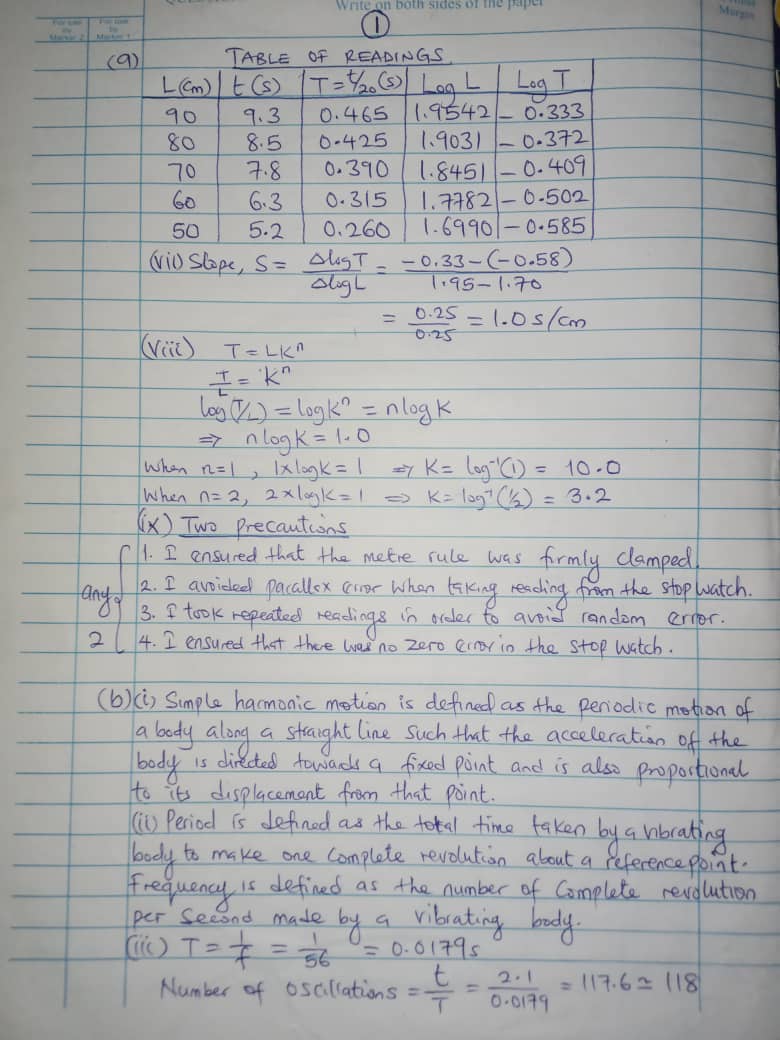 Write on both sides of the paper
Margin
For use by Marker 2
For use by Marker 1
1
(a) TABLE OF READINGS
L(cm) t(s) T=t/20(s) Log L Log T
90 9.3 0.465 1.9542 -0.333
80 8.5 0.425 1.9031 -0.372
70 7.8 0.390 1.8451 -0.409
60 6.3 0.315 1.7782 -0.502
50 5.2 0.260 1.6990 -0.585
(vii) Slope, S = ΔlogT/ΔlogL = -0.33-(-0.58)/1.95-1.70
= 0.25/0.25 = 1.0 s/cm
(viii) T = LKⁿ
T/L = Kⁿ
log(T/L) = logKⁿ = nlogK
⇒ nlogK = 1.0
When n=1, 1×logK = 1 ⇒ K = log⁻¹(1) = 10.0
When n=2, 2×logK=1 ⇒ K = log⁻¹(½) = 3.2
(ix) Two precautions
any 2
1. I ensured that the metre rule was firmly clamped.
2. I avoided parallex error when taking reading from the stop watch.
3. I took repeated readings in order to avoid random error.
4. I ensured that there was no zero error in the stop watch.
(b)(i) Simple harmonic motion is defined as the periodic motion of
a body along a straight line such that the acceleration of the
body is directed towards a fixed point and is also proportional
to its displacement from that point.
(ii) Period is defined as the total time taken by a vibrating
body to make one complete revolution about a reference point.
Frequency is defined as the number of complete revolution
per second made by a vibrating body.
(iii) T = 1/f = 1/56 = 0.0179s
Number of oscillations = t/T = 2.1/0.0179 = 117.6 ≃ 118